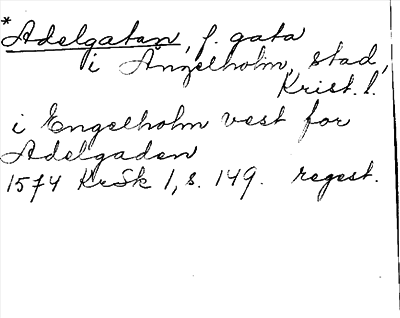 *
Adelgatan, f. gata
i Ängelholm, stad,
Krist. l.
i Engelholm vest for
Adelgaden
1574 KrSk 1, s. 149. regest.